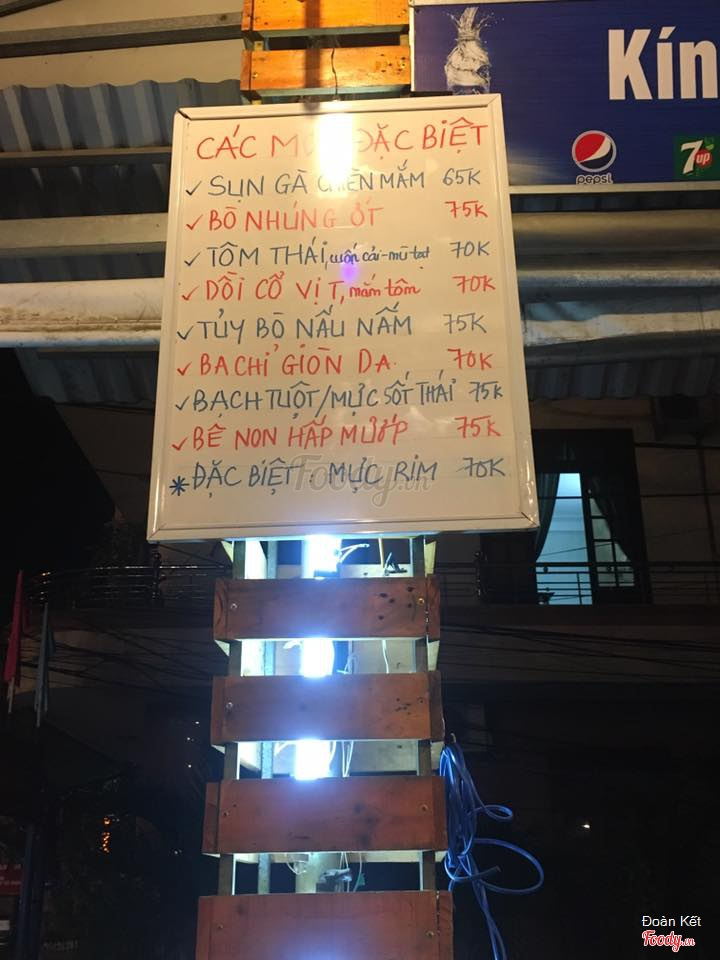 Kín
pepsi
7up
CÁC MÓN ĐẶC BIỆT
✓ SỤN GÀ CHIÊN MẮM 65K
✓ BÒ NHÚNG ỚT 75K
✓ TÔM THÁI, cuốn cải-mù tạt 70K
✓ DỒI CỔ VỊT, mắm tôm 70K
✓ TỦY BÒ NẤU NẤM 75K
✓ BA CHỈ GIÒN DA. 70K
✓ BẠCH TUỘT/MỰC SỐT THÁI 75K
✓ BÊ NON HẤP MƯỚP 75K
* ĐẶC BIỆT: MỰC RIM 70K
Foody.vn
Đoàn Kết
Foody.vn